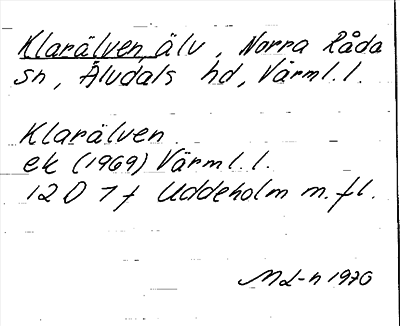 Klarälven, älv, Norra Råda
sn, Älvdals hd, Värml. l.
Klarälven
ek (1969) Värml. l.
12 D 7 f Uddeholm m. fl.
ML-n 1970